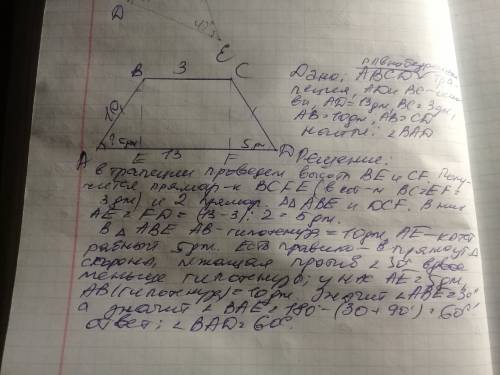 D
E
B 3 C
10
5 дм 5 дм
A E 13 F D
равнобедренная
Дано: ABCD - тра-
пеция, AD и BC - основа-
ния, AD = 13 дм, BC = 3 дм,
AB = 10 дм, AB = CD
Найти: ∠BAD
Решение:
В трапеции проведем высоты BE и CF. Полу-
чится прямоуг-к BCFE (в кот-м BC = EF =
3 дм) и 2 прямоуг. ΔΔ ABE и DCF. В них
AE = FD = (13-3) : 2 = 5 дм.
В Δ ABE AB - гипотенуза = 10 дм, AE - катет
равный 5 дм. Есть правило - в прямоуг Δ
сторона, лежащая против ∠30° вдвое
меньше гипотенузы; у нас AE = 5 дм,
AB (гипотенуза) = 10 дм, значит ∠ABE = 30°
а значит ∠BAE = 180° - (30 + 90°) = 60°
Ответ: ∠BAD = 60°.